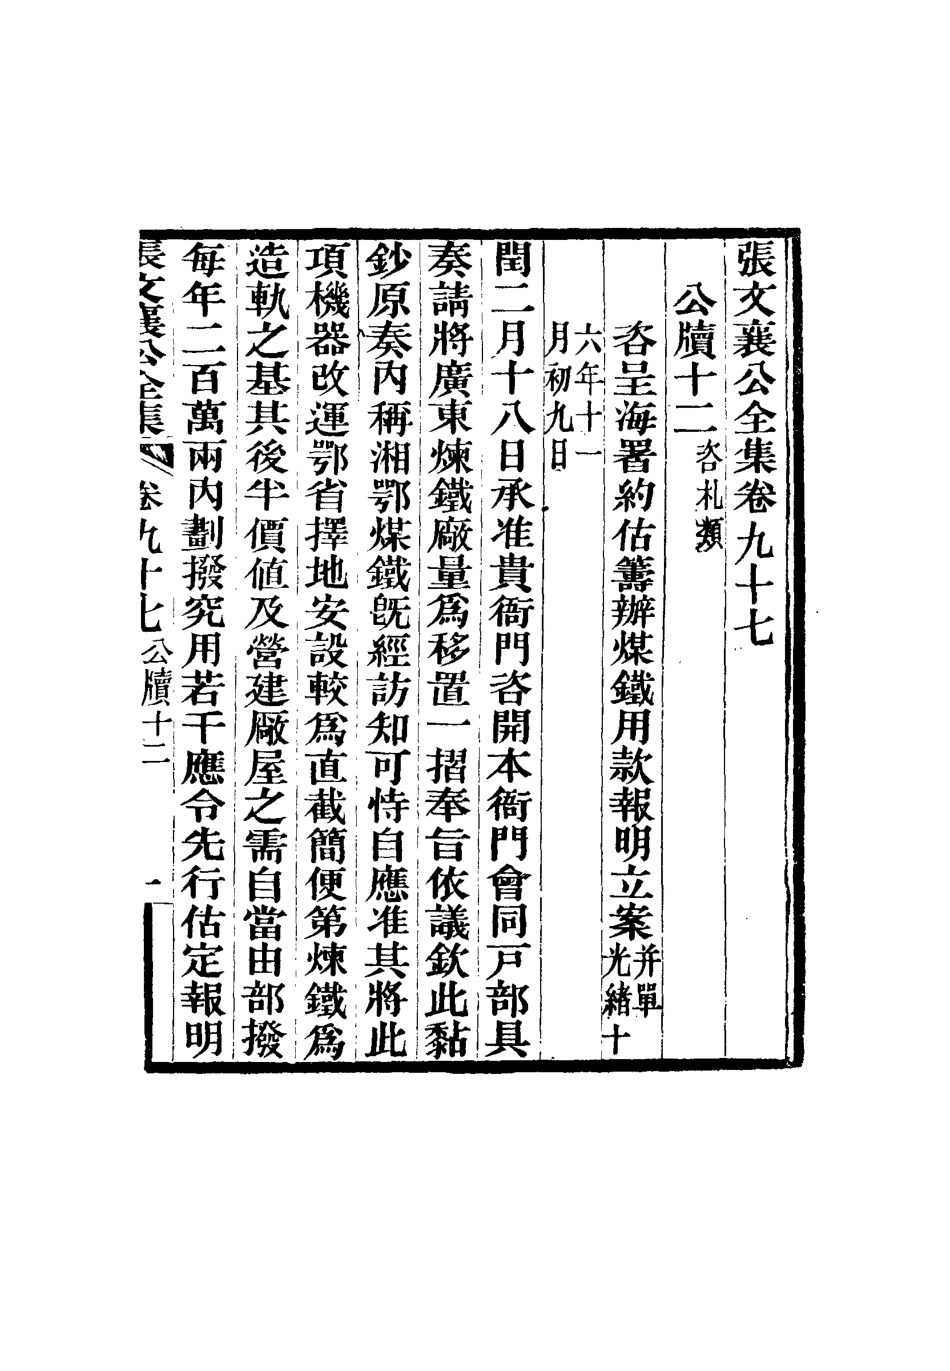 張文襄公全集卷九十七
公牘十二咨札類
咨呈海署約估籌辦煤鐵用款報明立案并單光緒十
六年十一月初九日
閏二月十八日承准貴衙門咨開本衙門會同戸部具
奏請將廣東煉鐵廠量爲移置一摺奉旨依議欽此黏
鈔原奏內稱湘鄂煤鐵旣經訪知可恃自應准其將此
項機器改運鄂省擇地安設較爲直截簡便第煉鐵爲
造軌之基其後半價値及營建厰屋之需自當由部撥
每年二百萬兩內劃撥究用若干應令先行估定報明
張文襄公全集 卷九十七 公牘十二 一